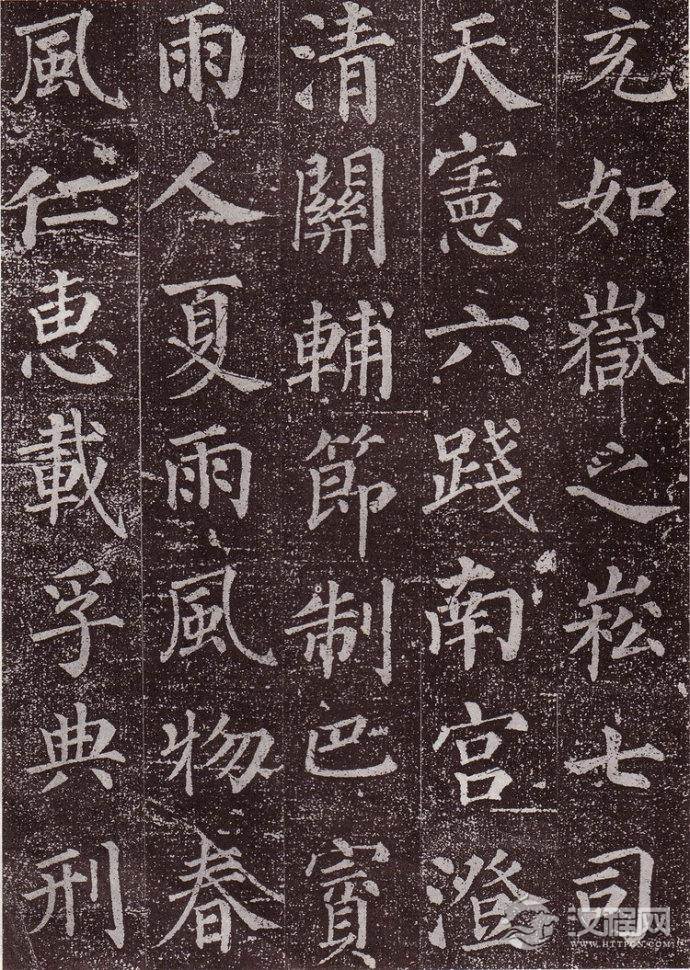 充如嶽之崧七司
天憲六踐南宮澄
清關輔節制巴賨
雨人夏雨風物春
風仁惠載孚典刑
汉程网
WWW.HTTPCN.COM